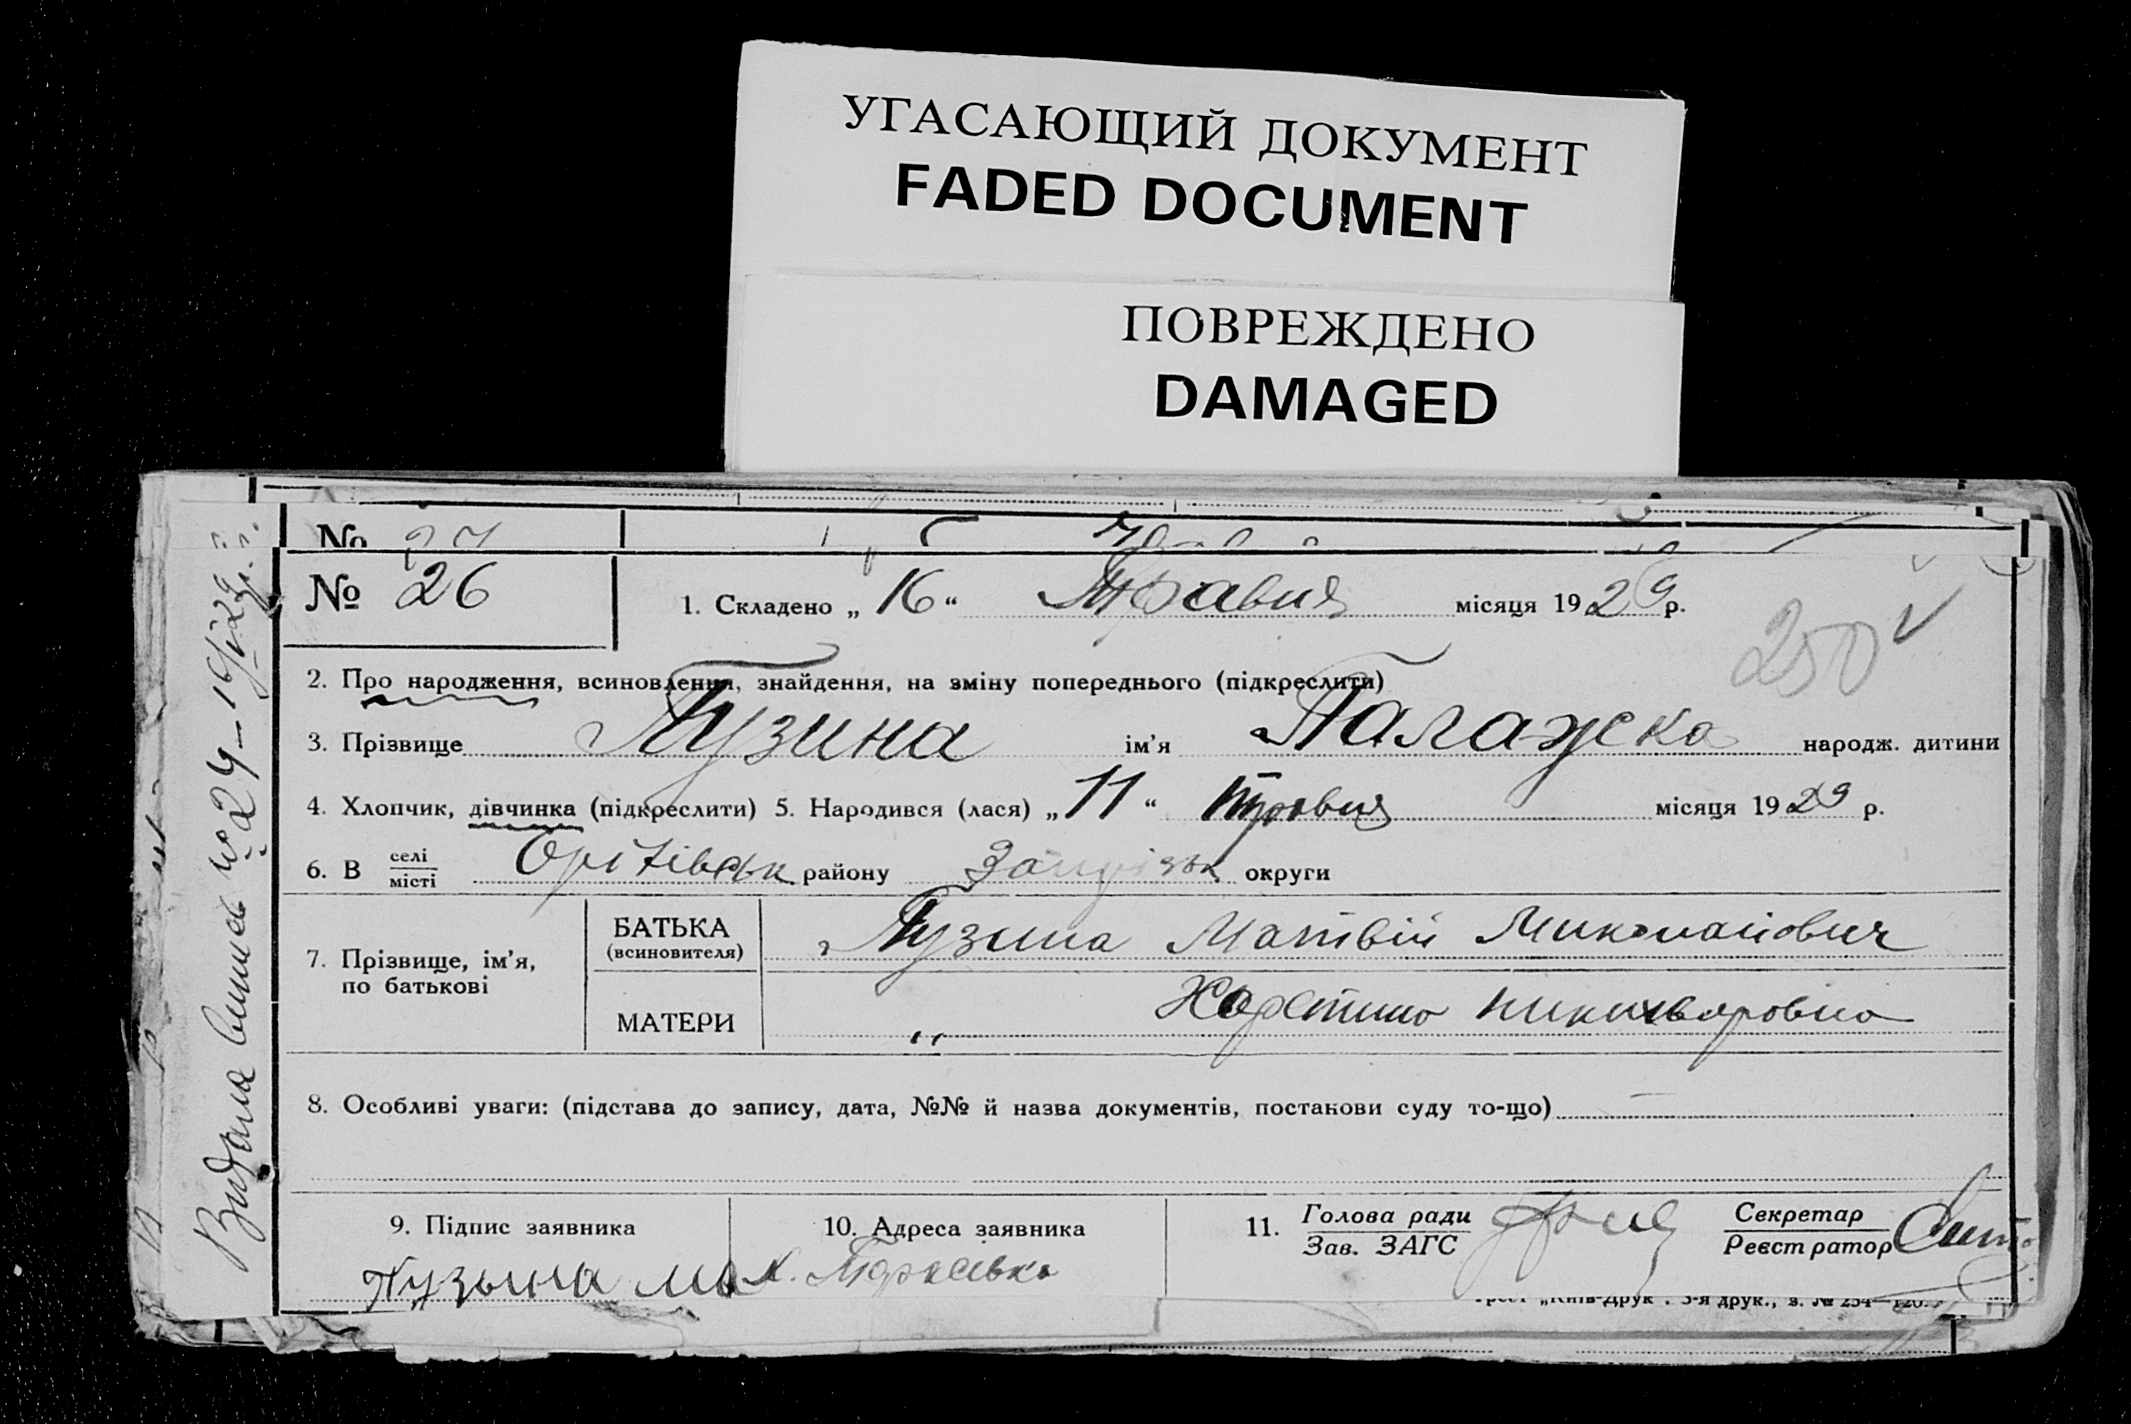 УГАСАЮЩИЙ ДОКУМЕНТ
FADED DOCUMENT
ПОВРЕЖДЕНО
DAMAGED
№ 27
№ 26
1. Складено „ 16 “ Травня місяця 1929 р.
250
2. Про народження, всиновлення, знайдення, на зміну попереднього (підкреслити)
3. Прізвище Пузина ім'я Палажка народж. дитини
4. Хлопчик, дівчинка (підкреслити) 5. Народився (лася) „ 11 “ травня місяця 1929 р.
6. В селі/місті Оріхівськ району округи
7. Прізвище, ім'я, по батькові
БАТЬКА (всиновителя) Пузина Матвій Миколайович
МАТЕРИ „
8. Особливі уваги: (підстава до запису, дата, №№ й назва документів, постанови суду то-що) —
9. Підпис заявника
10. Адреса заявника
11. Голова ради/Зав. ЗАГС
Секретар/Реєстратор
Пузына
Видана № 24